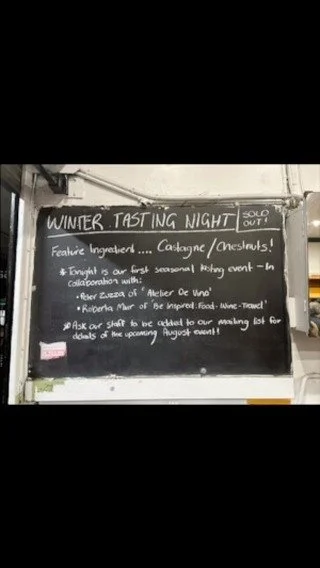 WINTER TASTING NIGHT
SOLD
OUT!
Feature Ingredient .... Castagne/Chestnuts!
* Tonight is our first seasonal tasting event - In
collaboration with:
• Peter Zuzza of 'Atelier De Vino'
• Roberta Muir of 'Be Inspired. Food - Wine - Travel'
* Ask our staff to be added to our mailing list for
details of the upcoming August event!